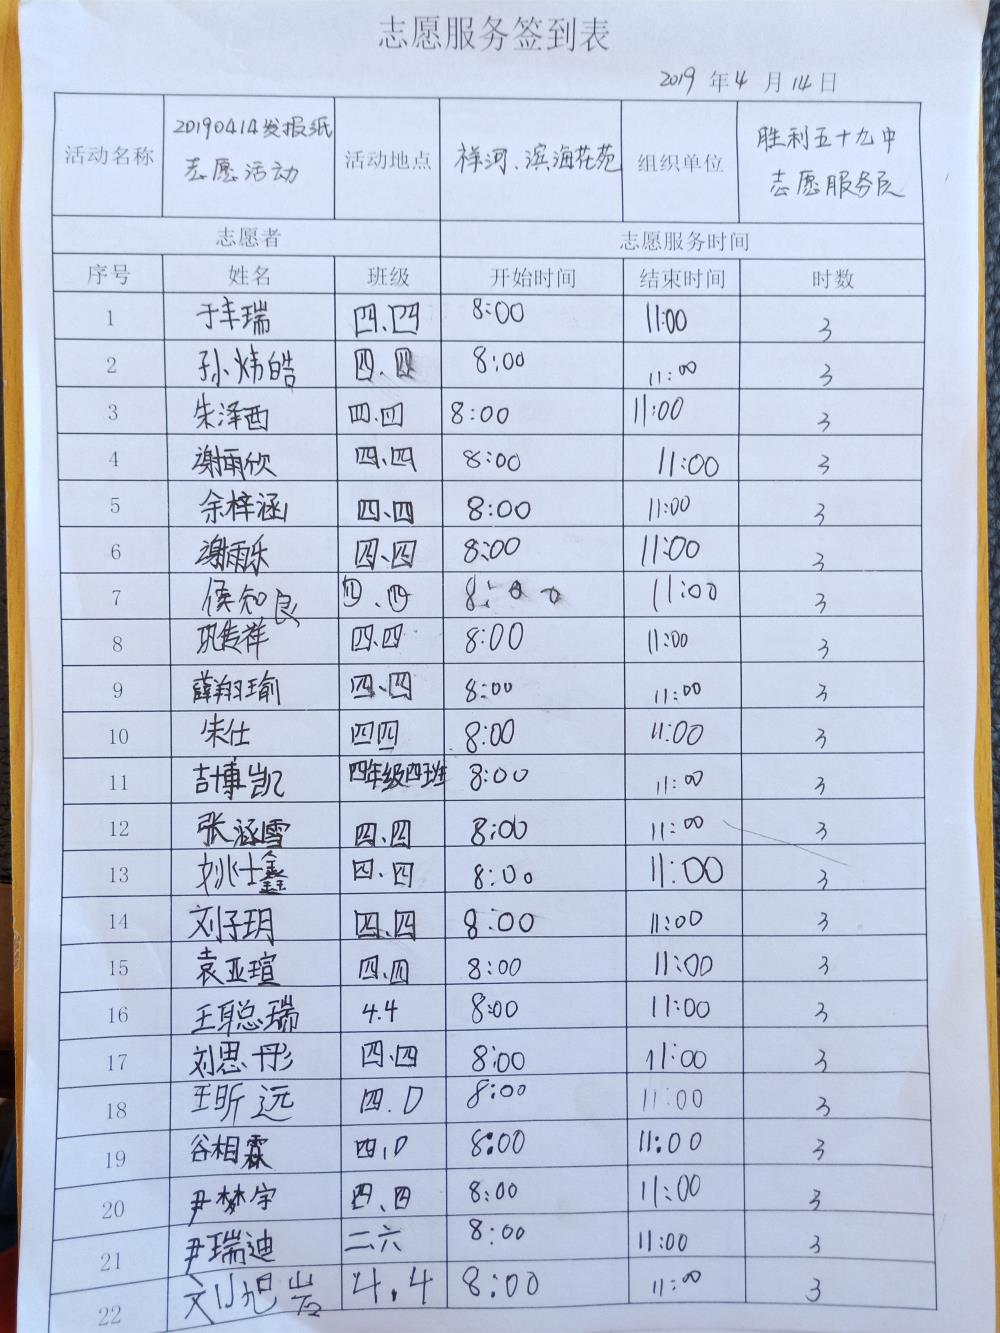 志愿服务签到表
2019 年 4 月 14 日
活动名称 20190414发报纸志愿活动 活动地点 祥河、滨海花苑 组织单位 胜利五十九中志愿服务队
志愿者 志愿服务时间
序号 姓名 班级 开始时间 结束时间 时数
1 于丰瑞 四、四 8:00 11:00 3
2 孙炜皓 四、四 8:00 11:00 3
3 朱泽西 四、四 8:00 11:00 3
4 谢雨欣 四、四 8:00 11:00 3
5 余梓涵 四、四 8:00 11:00 3
6 谢雨乐 四、四 8:00 11:00 3
7 侯知良 四、四 8:00 11:00 3
8 巩传祥 四、四 8:00 11:00 3
9 薛翔瑜 四、四 8:00 11:00 3
10 朱仕 四四 8:00 11:00 3
11 吉博凯 四年级四班 8:00 11:00 3
12 张涵雪 四、四 8:00 11:00 3
13 姚仕鑫 四、四 8:00 11:00 3
14 刘子玥 四、四 8:00 11:00 3
15 袁亚瑄 四、四 8:00 11:00 3
16 王聪瑞 4.4 8:00 11:00 3
17 刘思彤 四、四 8:00 11:00 3
18 王昕远 四. 8:00 11:00 3
19 谷相霖 四, 8:00 11:00 3
20 尹梦宇 四、四 8:00 11:00 3
21 尹瑞迪 二六 8:00 11:00 3
22 刘旭岩 4.4 8:00 11:00 3